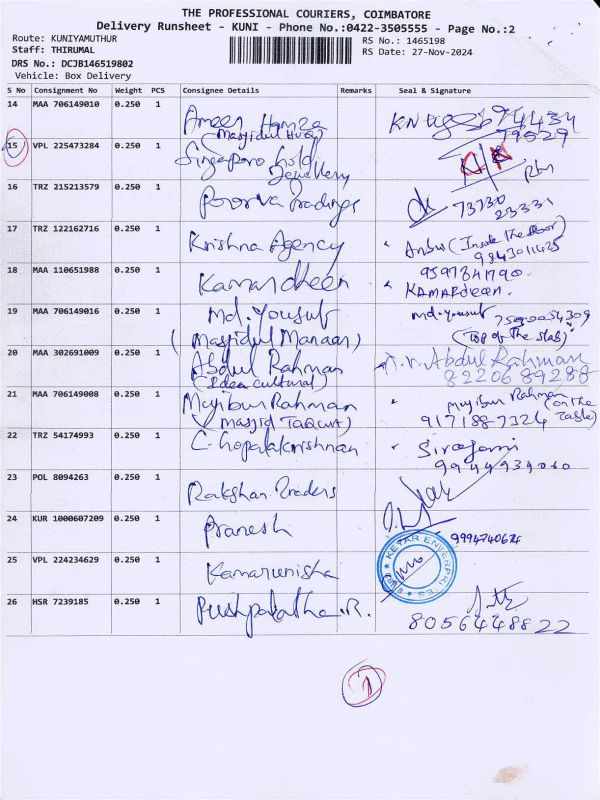 THE PROFESSIONAL COURIERS, COIMBATORE
Delivery Runsheet - KUNI - Phone No.:0422-3505555 - Page No.:2
Route: KUNIYAMUTHUR
RS No.: 1465198
Staff: THIRUMAL
RS Date: 27-Nov-2024
DRS No.: DCJB146519802
Vehicle: Box Delivery
S No Consignment No Weight PCS Consignee Details Remarks Seal & Signature
14 MAA 706149010 0.250 1 Ameer Hamza 74434
(Masjidul Huq) 79529
15 VPL 225473284 0.250 1 Singapore Gold
Jewellery
16 TRZ 215213579 0.250 1 Poorva Tradings 73730
23331
17 TRZ 122162716 0.250 1 Krishna Agency Anbu (Inside The Door)
9843011425
18 MAA 110651988 0.250 1 Kamardheen
KAMARdeen.
19 MAA 706149016 0.250 1 Md. Yousuf md-yousuf
(Masjidul Manaar) (Top of The slab)
20 MAA 302691009 0.250 1 Abdul Rahman Abdul Rahman
(Idea Cultural) 8220689288
21 MAA 706149008 0.250 1 Mujibur Rahman mujibur Rahman (on the
Table)
(Masjid Taqwa) 9171887324
22 TRZ 54174993 0.250 1 C. Gopalakrishnan
23 POL 8094263 0.250 1 Rakshan Traders
24 KUR 1000607209 0.250 1 Pranesh
25 VPL 224234629 0.250 1 Kamarunisha
26 HSR 7239185 0.250 1 Pushpalatha.R. 8056448822
1